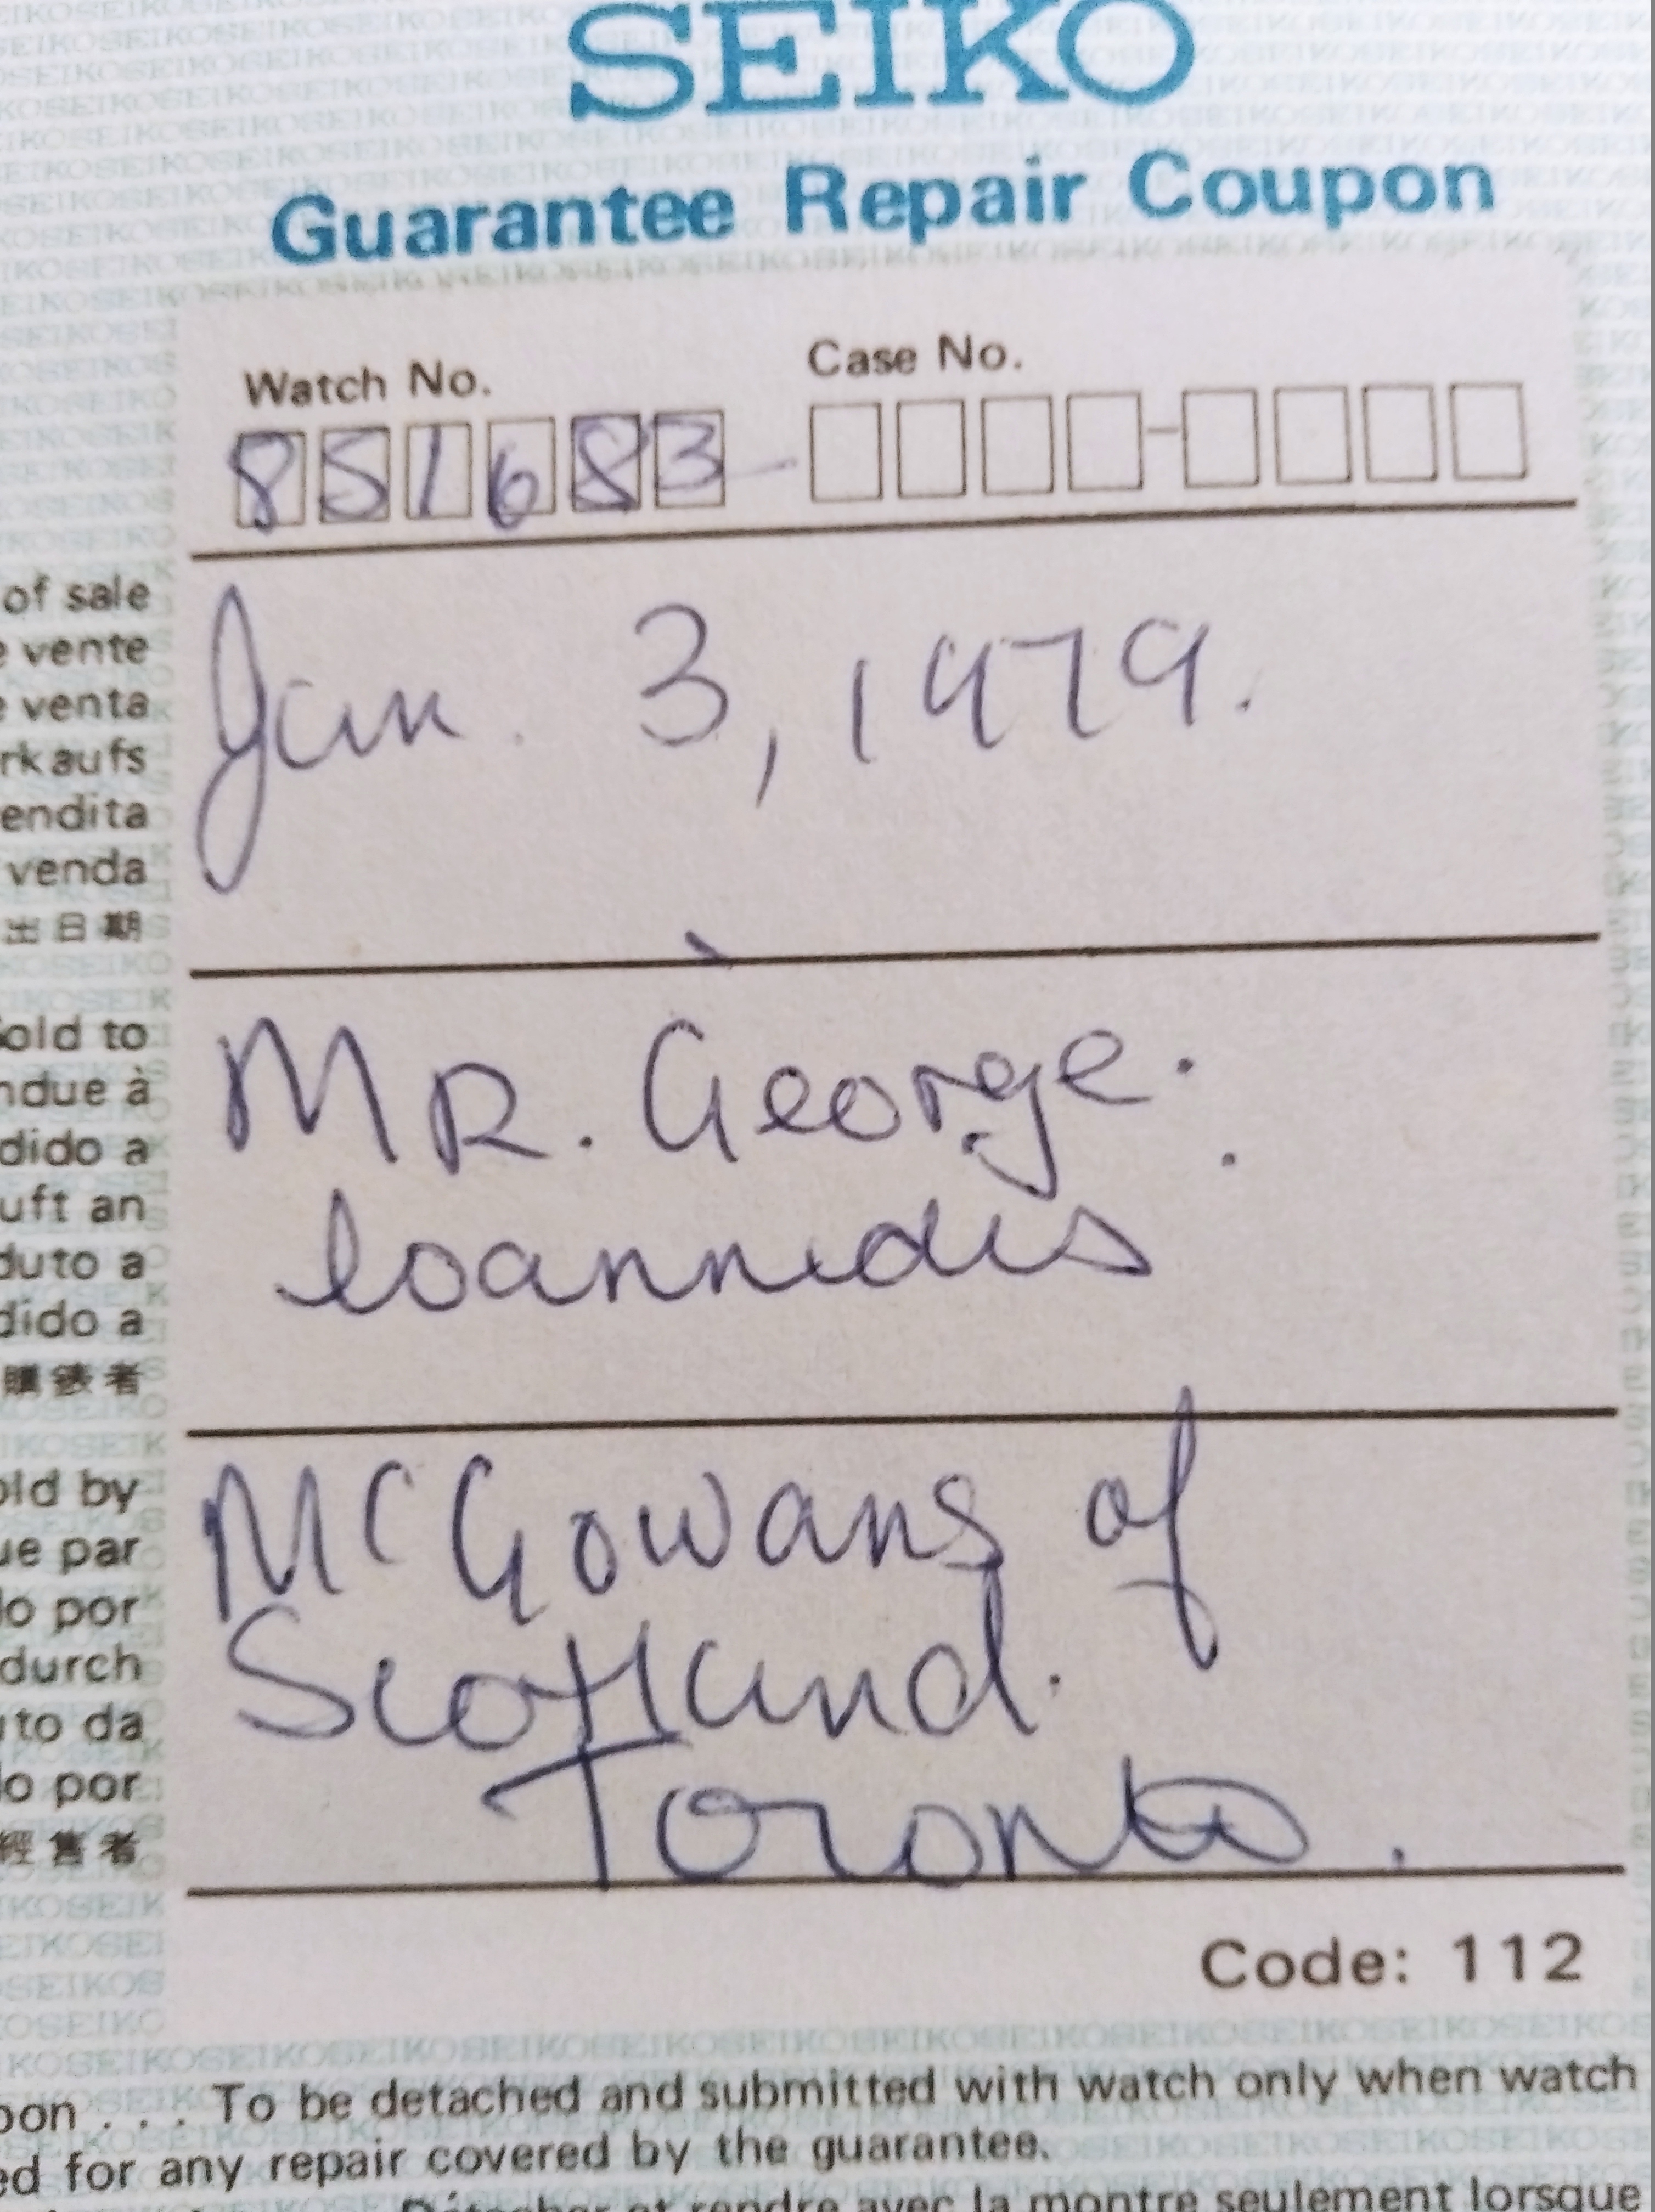 SEIKO
Guarantee Repair Coupon
Watch No. Case No.
851683 -
of sale
vente
venta
rkaufs
endita
venda
出日期
Jan. 3, 1979.
old to
ndue à
dido a
uft an
duto a
dido a
購錶者
MR. George.
Ioannidis
old by
ue par
do por
durch
uto da
do por
經售者
McGowans of
Scotland.
Toronto.
Code: 112
pon . . . To be detached and submitted with watch only when watch
ed for any repair covered by the guarantee.
Détacher et rendre avec la montre seulement lorsque